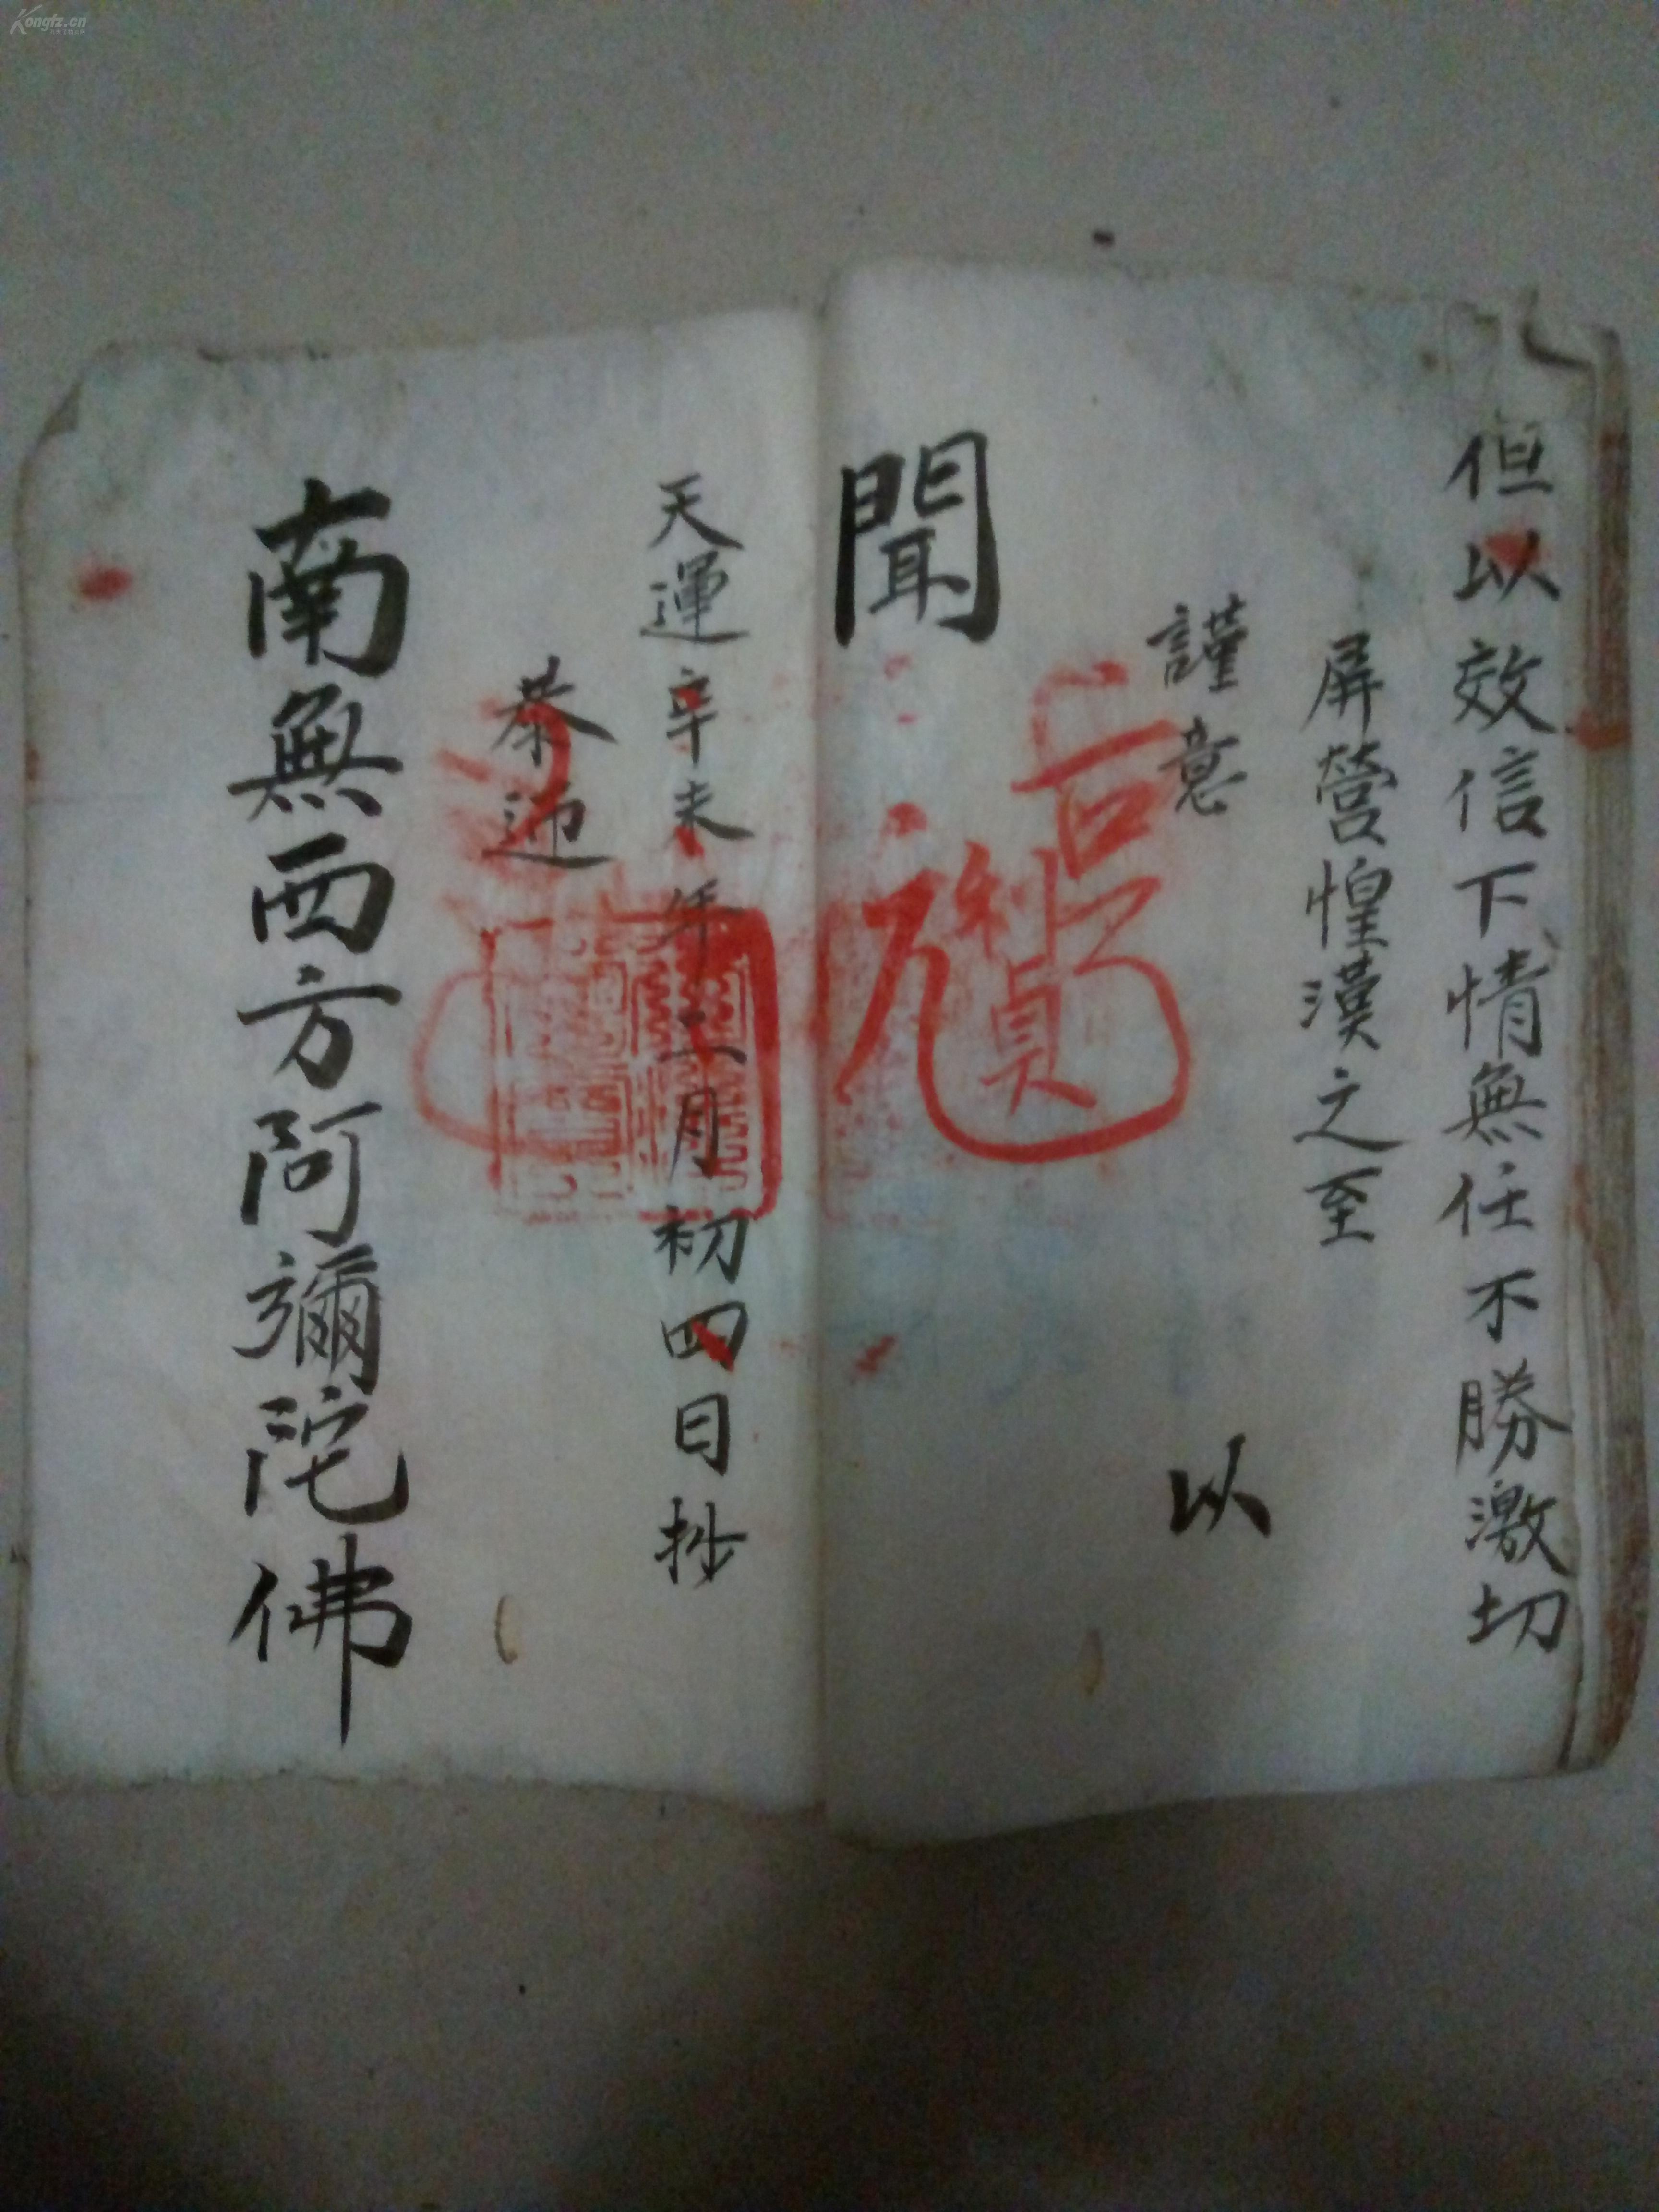 但以效信下情無任不勝激切
屏營惶漢之至
謹意 以
聞
天運辛未年二月初四日抄
恭迎
南無西方阿彌陀佛
Kongfz.cn